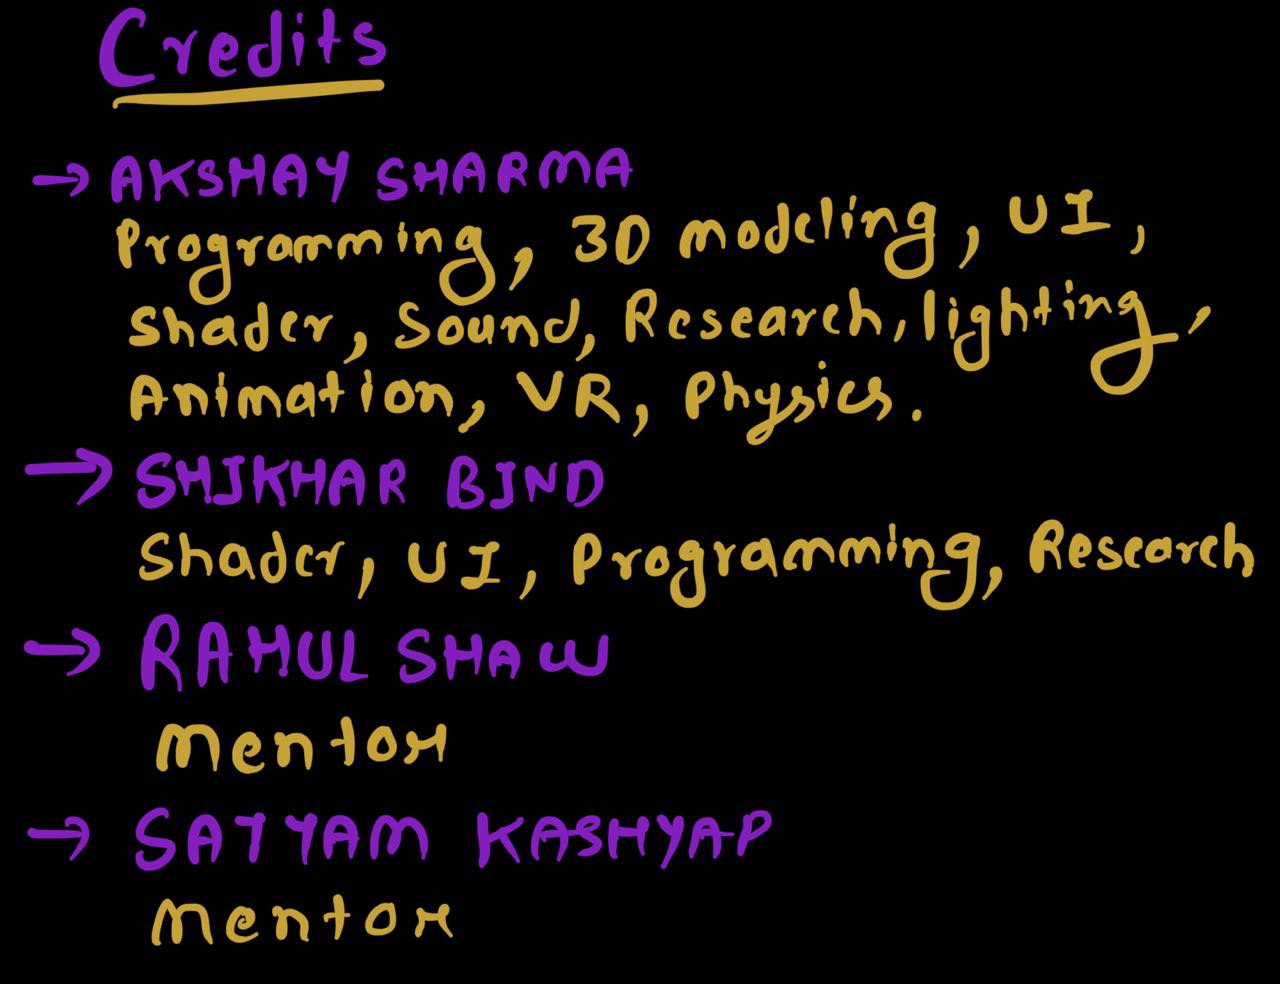 Credits
→ AKSHAY SHARMA
Programming, 3D modeling, UI,
Shader, Sound, Research, lighting,
Animation, VR, Physics.
→ SHIKHAR BIND
Shader, UI, Programming, Research
→ RAHUL SHAW
Mentor
→ SATYAM KASHYAP
Mentor